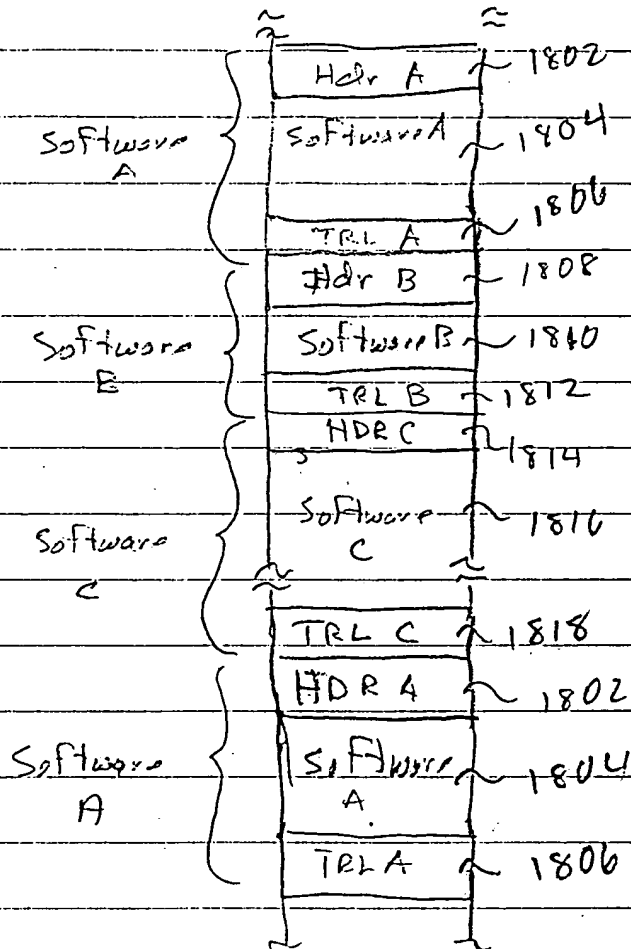 Hdr A 1802
Software A
Software A 1804
TRL A 1806
Hdr B 1808
Software B
Software B 1810
TRL B 1812
HDR C 1814
Software C
Software C 1816
TRL C 1818
HDR A 1802
Software A
Software A. 1804
TRL A 1806